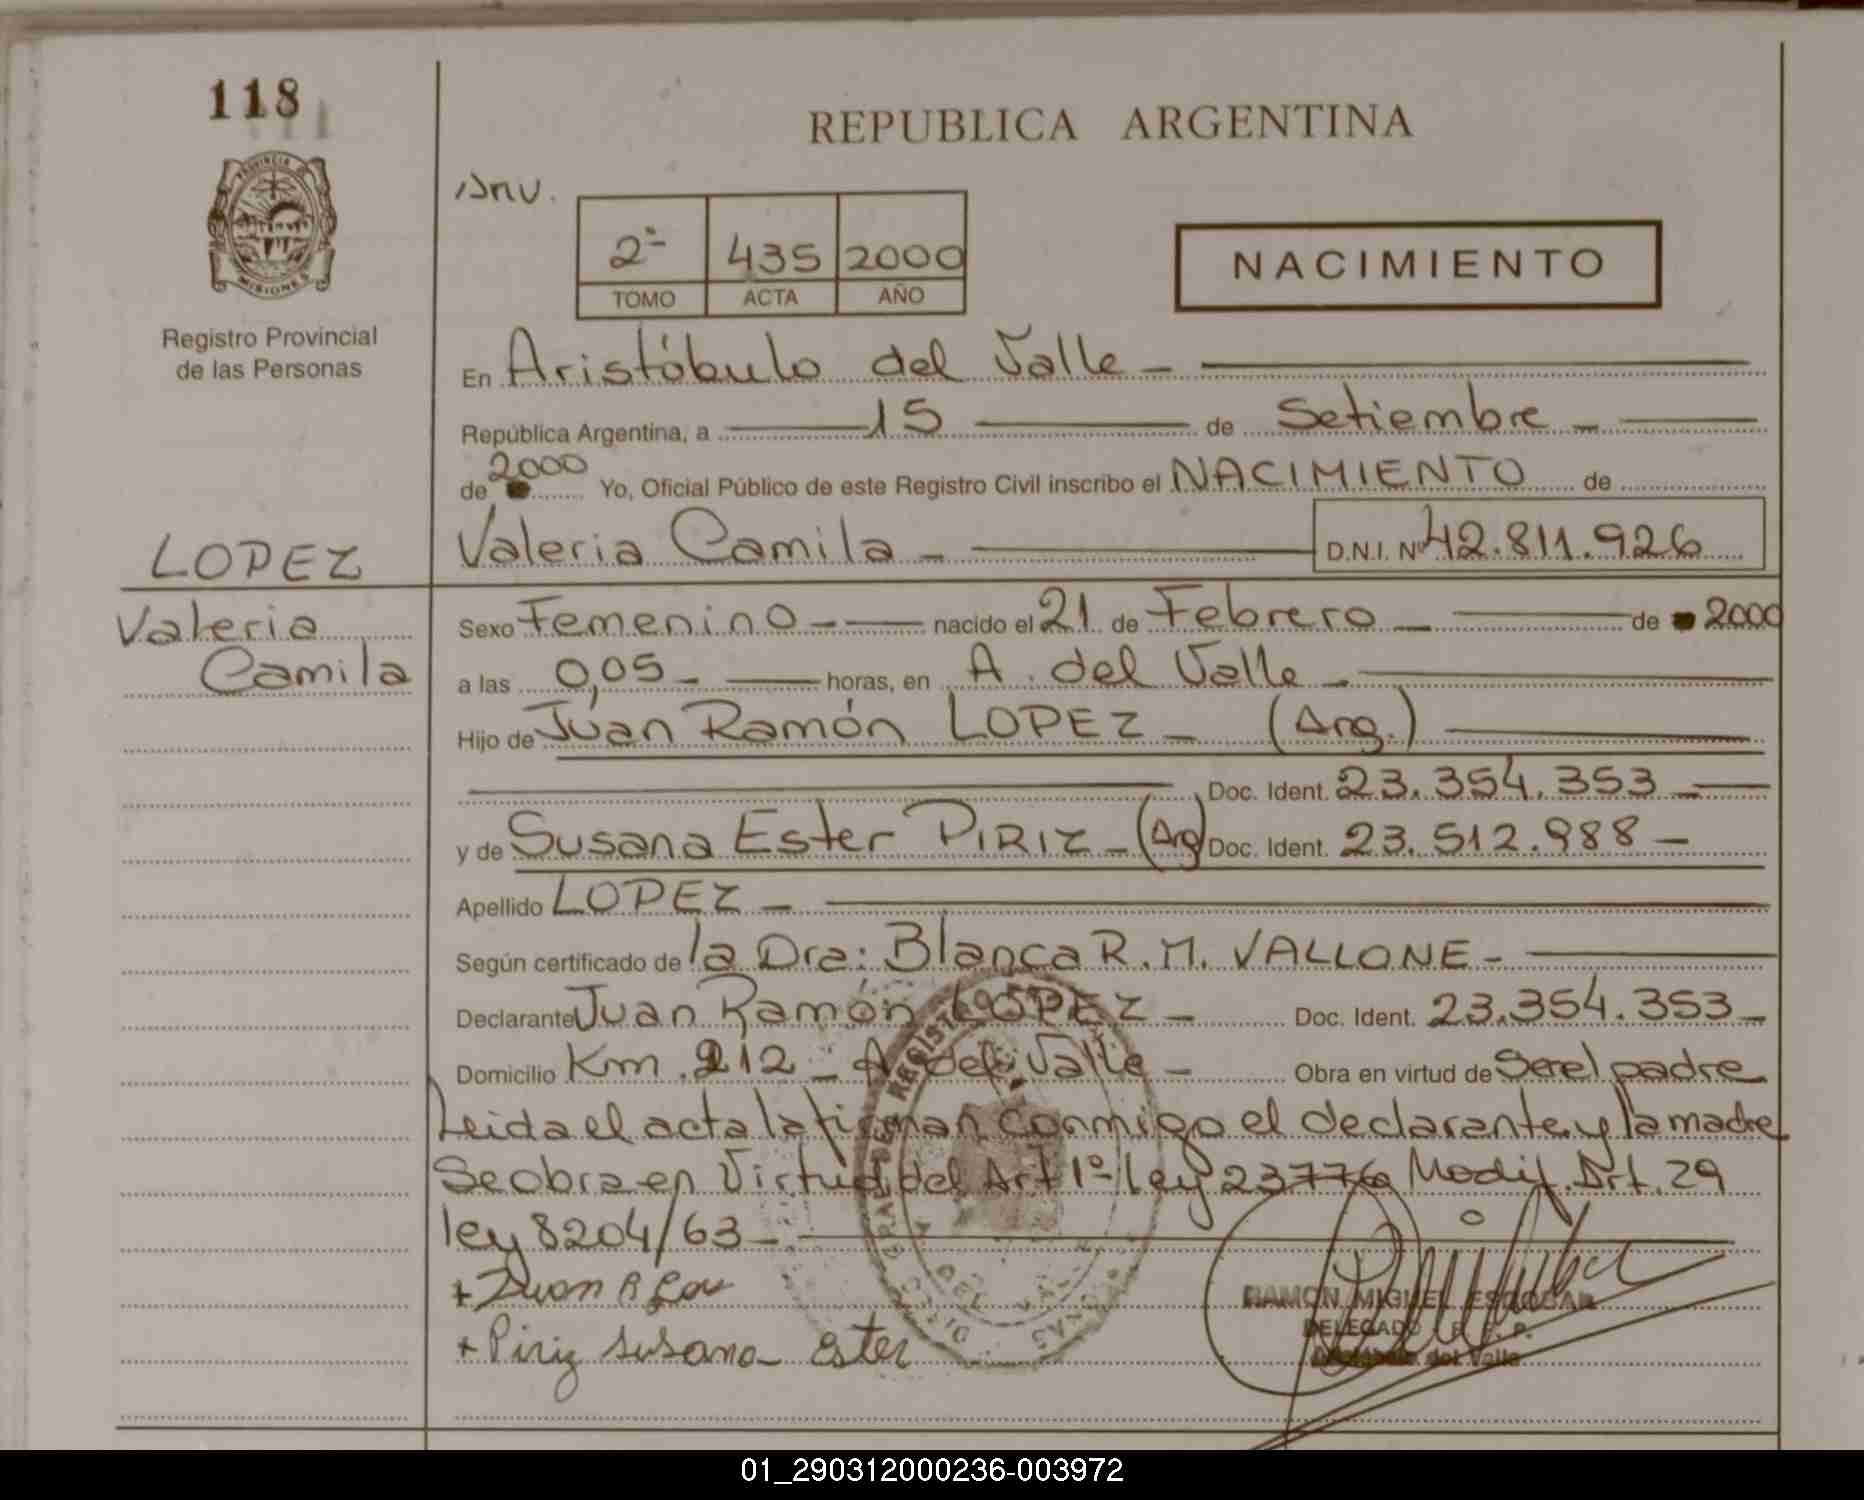 118
REPUBLICA ARGENTINA
PROVINCIA DE
MISIONES
Registro Provincial
de las Personas
2º 435 2000
TOMO ACTA AÑO
NACIMIENTO
En Aristóbulo del Valle -
República Argentina, a 15 de Setiembre -
de 2000 Yo, Oficial Público de este Registro Civil inscribo el NACIMIENTO de
LOPEZ
Valeria Camila
Valeria Camila - D.N.I. Nº 42.811.926
Sexo Femenino - nacido el 21 de Febrero - de 2000
a las 0,05 - horas, en A. del Valle -
Hijo de Juan Ramón LOPEZ - (Arg.)
Doc. Ident. 23.354.353 -
y de Susana Ester PIRIZ - (Arg) Doc. Ident. 23.512.988 -
Apellido LOPEZ -
Según certificado de la Dra: Blanca R. M. VALLONE -
Declarante Juan Ramón LOPEZ - Doc. Ident. 23.354.353 -
Domicilio Km. 212 - A. del Valle - Obra en virtud de Ser el padre
Leida el acta la firman conmigo el declarante y la madre
Se obra en Virtud del Art 1º ley 23776 Modif. Art. 29
ley 8204/63 -
+ Juan R
+ Piriz Susana Ester
RAMON MIGUEL ESCOBAR
DELEGADO R. P. P.
del Valle
01_290312000236-003972